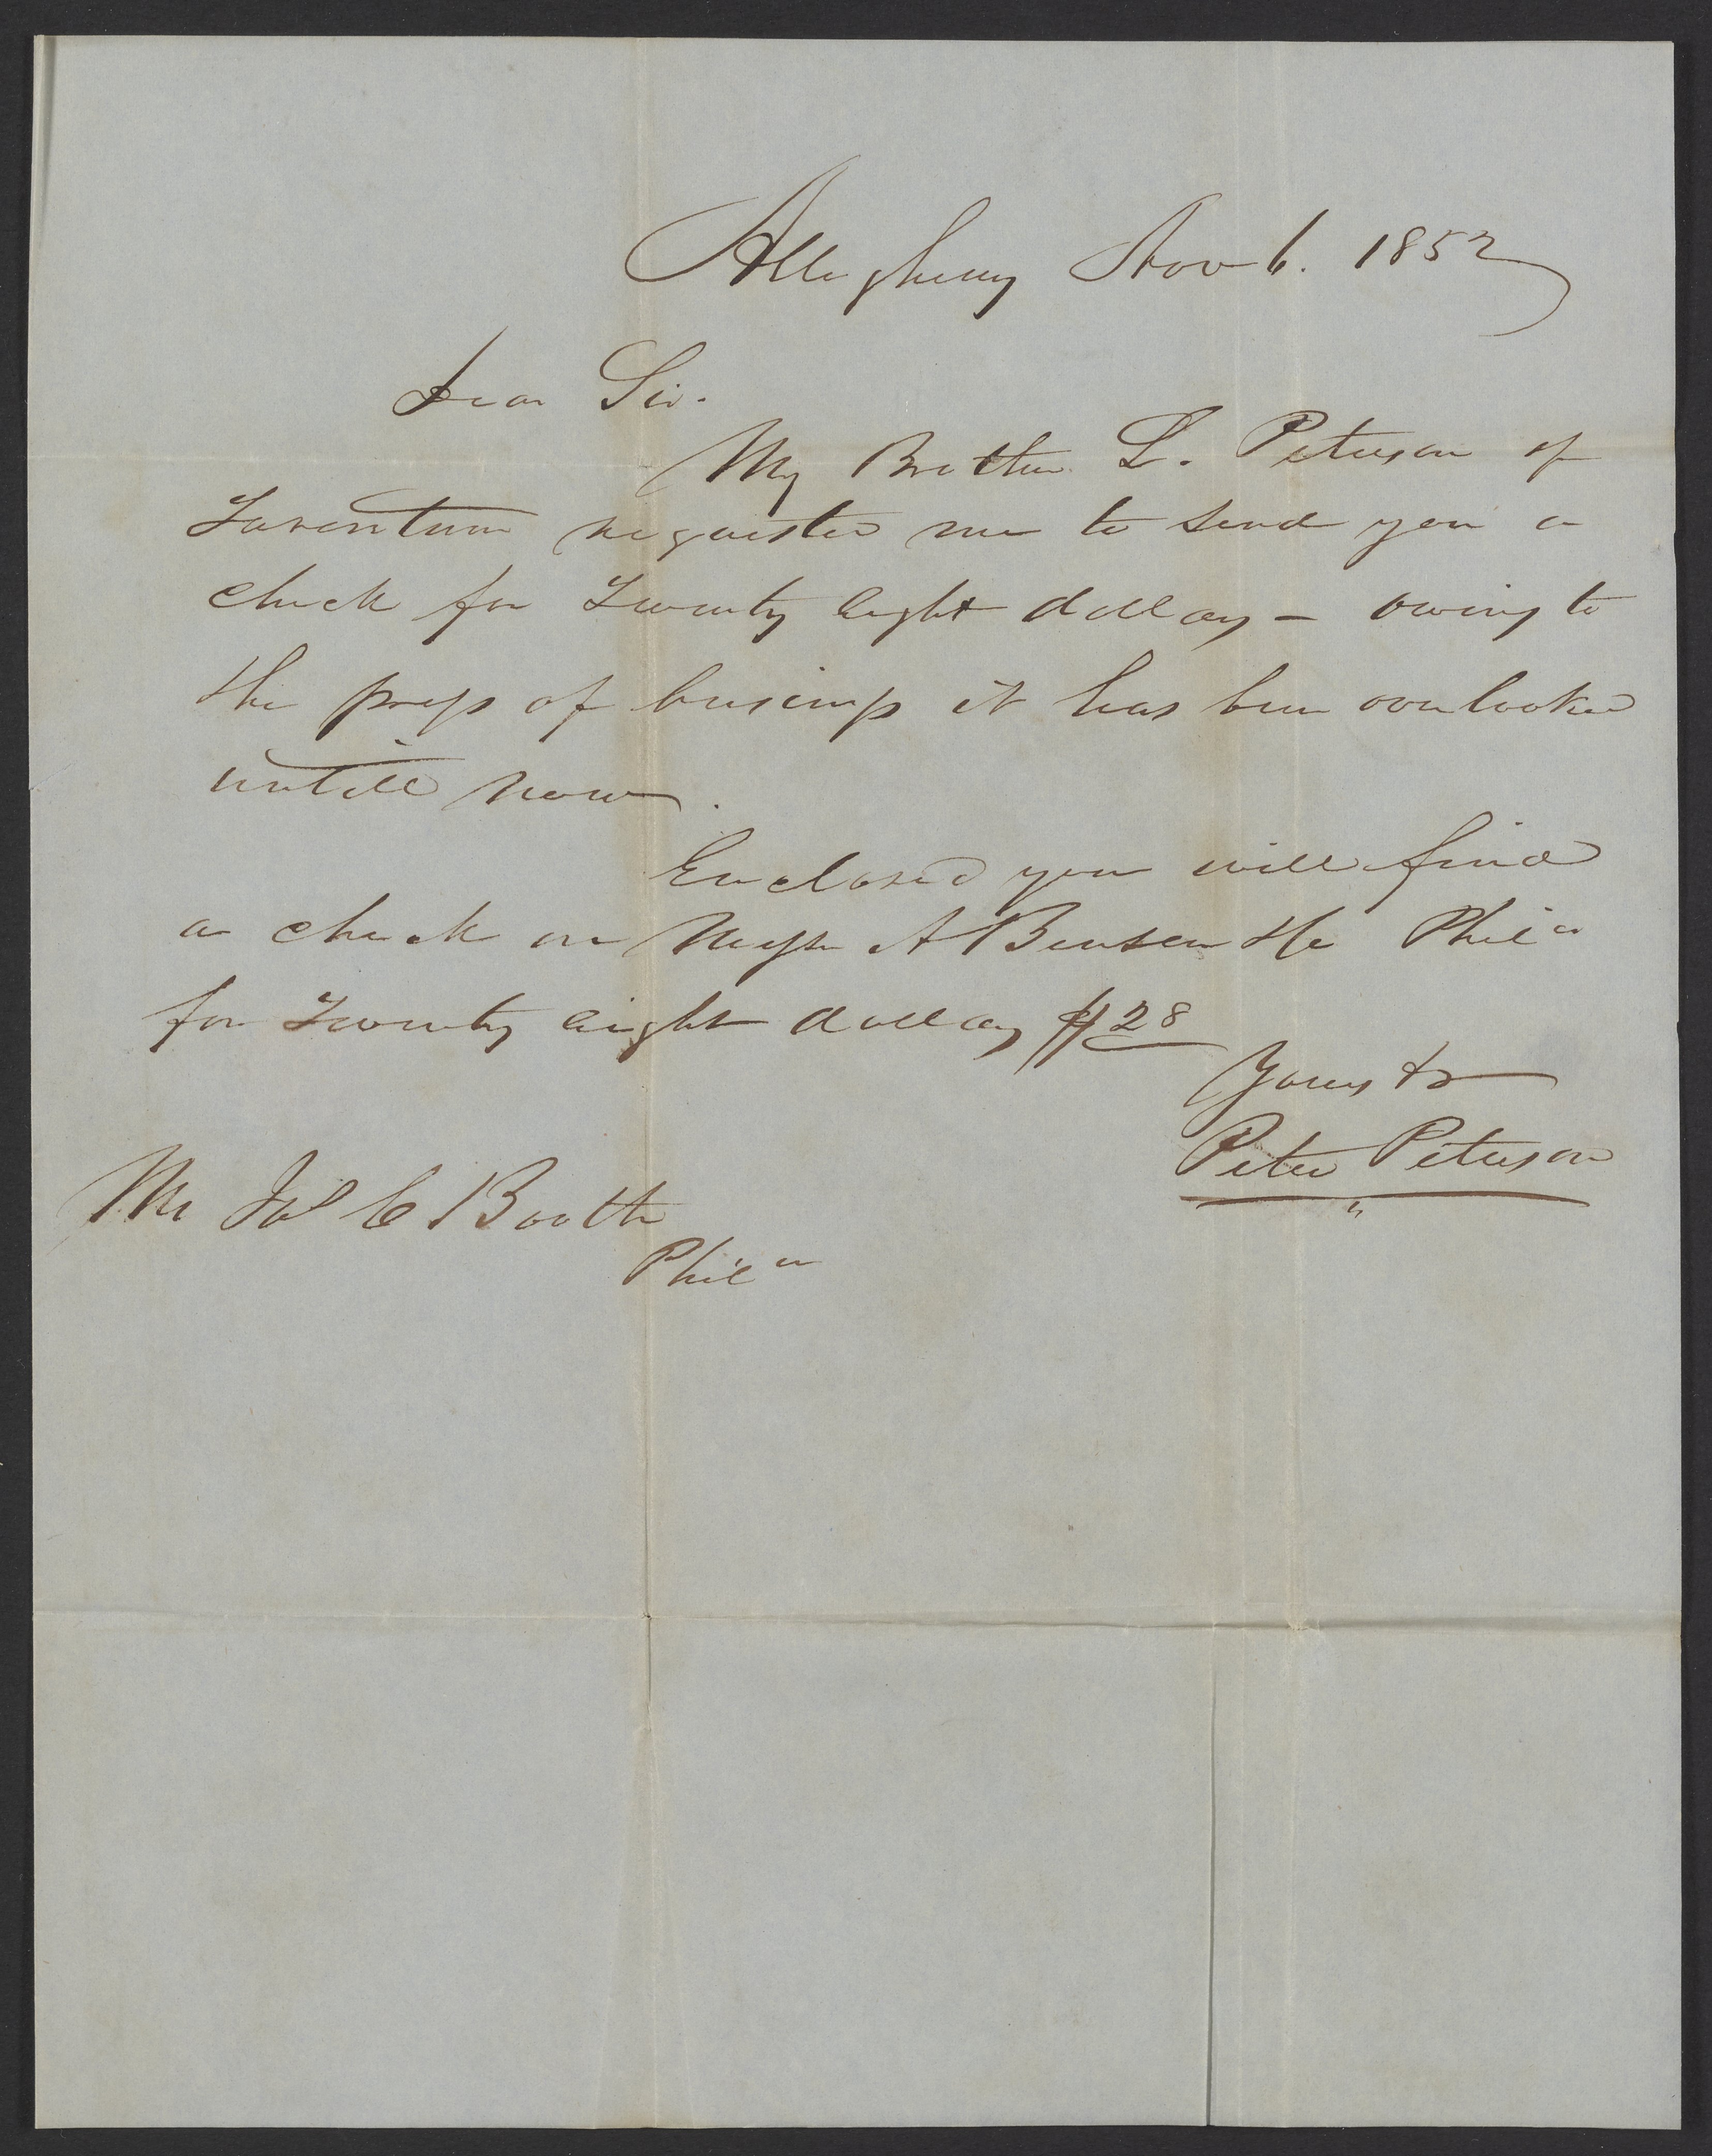 Allegheny Nov 6. 1852
Dear Sir.
My Brother L. Peterson of
Tarentum requested me to send you a
check for Twenty eight dollars – owing to
the press of business it has been overlooked
untill now.
Enclosed you will find
a check on Messrs A Benson &c Phila
for Twenty eight dollars $28
Yours &c
Peter Peterson
Mr Jas C Booth
Phila